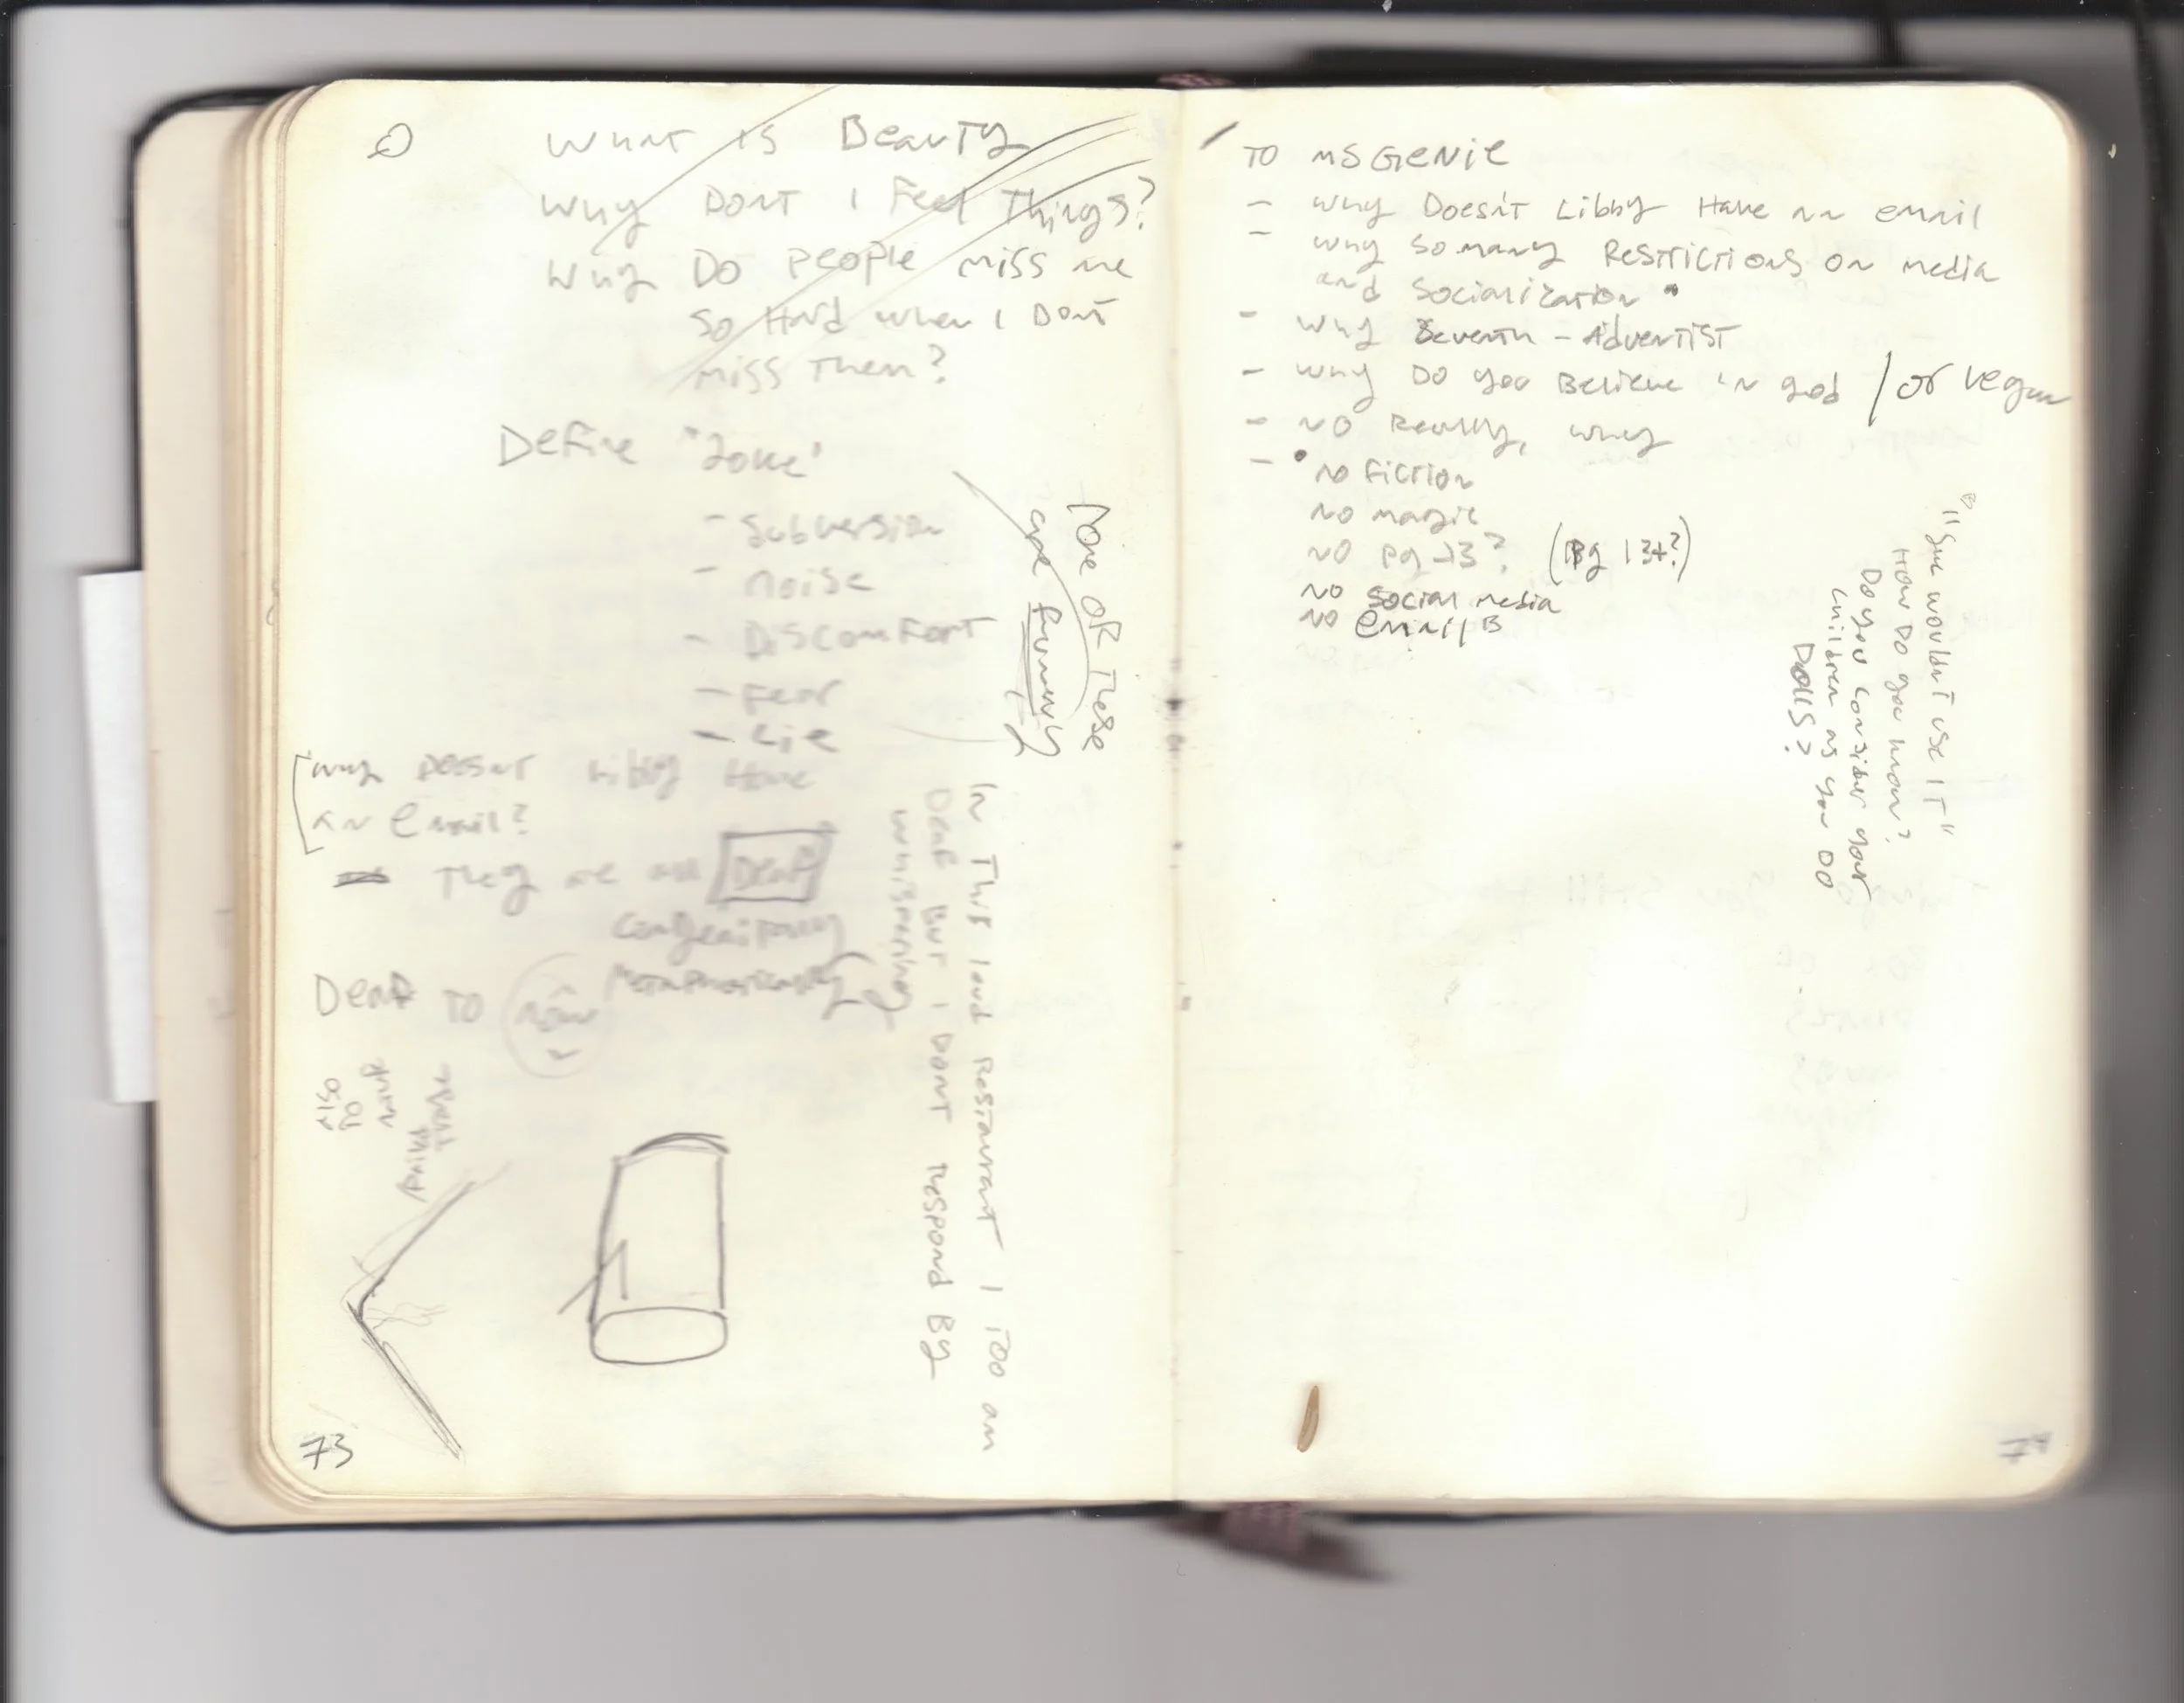 What is Beauty
Why Dont I Feel Things?
Why Do people miss me
so Hard when I Dont
miss Them?
Define "Joke"
- subversion
- noise
- Discomfort
- Fear
- Lie
None of these
are funny
Why Doesnt Libby Have
an email?
They are all Deaf
congenitally
metaphorically
Deaf to
also
to
In This loud Restaurant I Too am
Deaf But I Dont Respond By
whispering
73
To MS Genie
- Why Doesn't Libby Have an email
- Why so many Restrictions on media
and Socialization
- Why Seventh-Adventist
- Why Do you Believe in god / or vegan
- No Really, why
- No Fiction
No magic
No pg-13? (pg 13+?)
No social media
No email B
B "She wouldnt use IT"
How Do you know?
Do you consider your
children as you DO
Dolls?
74